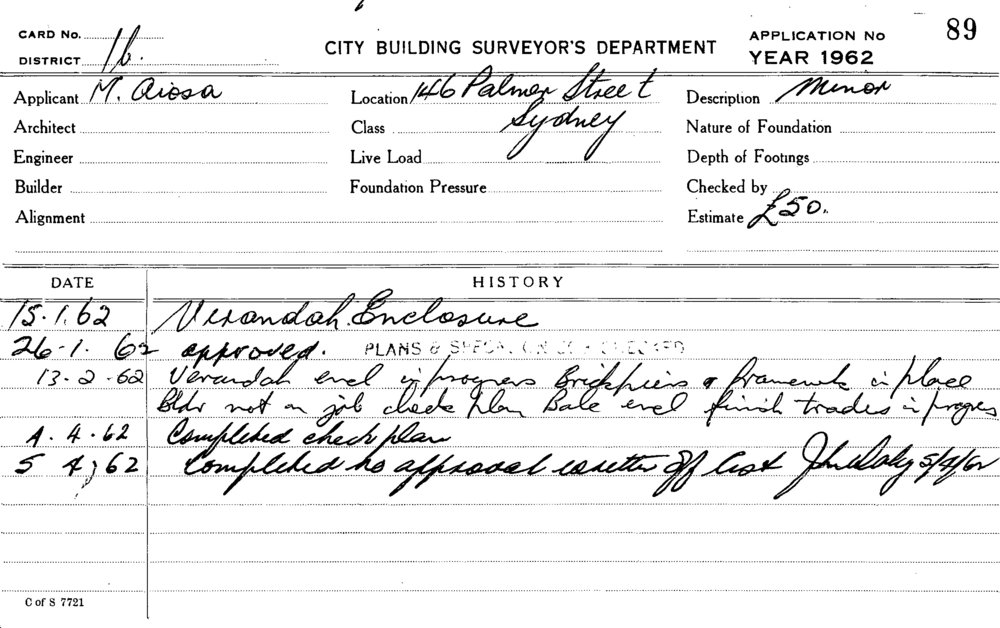 CARD No. 89
DISTRICT 16.
CITY BUILDING SURVEYOR'S DEPARTMENT
APPLICATION No
YEAR 1962
Applicant M. Aiosa
Location 146 Palmer Street
Sydney
Description Minor
Architect
Class
Nature of Foundation
Engineer
Live Load
Depth of Footings
Builder
Foundation Pressure
Checked by
Alignment
Estimate £50.
DATE HISTORY
15.1.62 Verandah Enclosure
26-1.62 approved. PLANS & SPECN.
13-2-62 Verandah encl in progress Brickpiers & framework in place
Bldr not on job check plan Balc encl finish trades in progress
4.4.62 Completed check plan
5 4 62 Completed no approval off list John Daly 5/4/62
C of S 7721